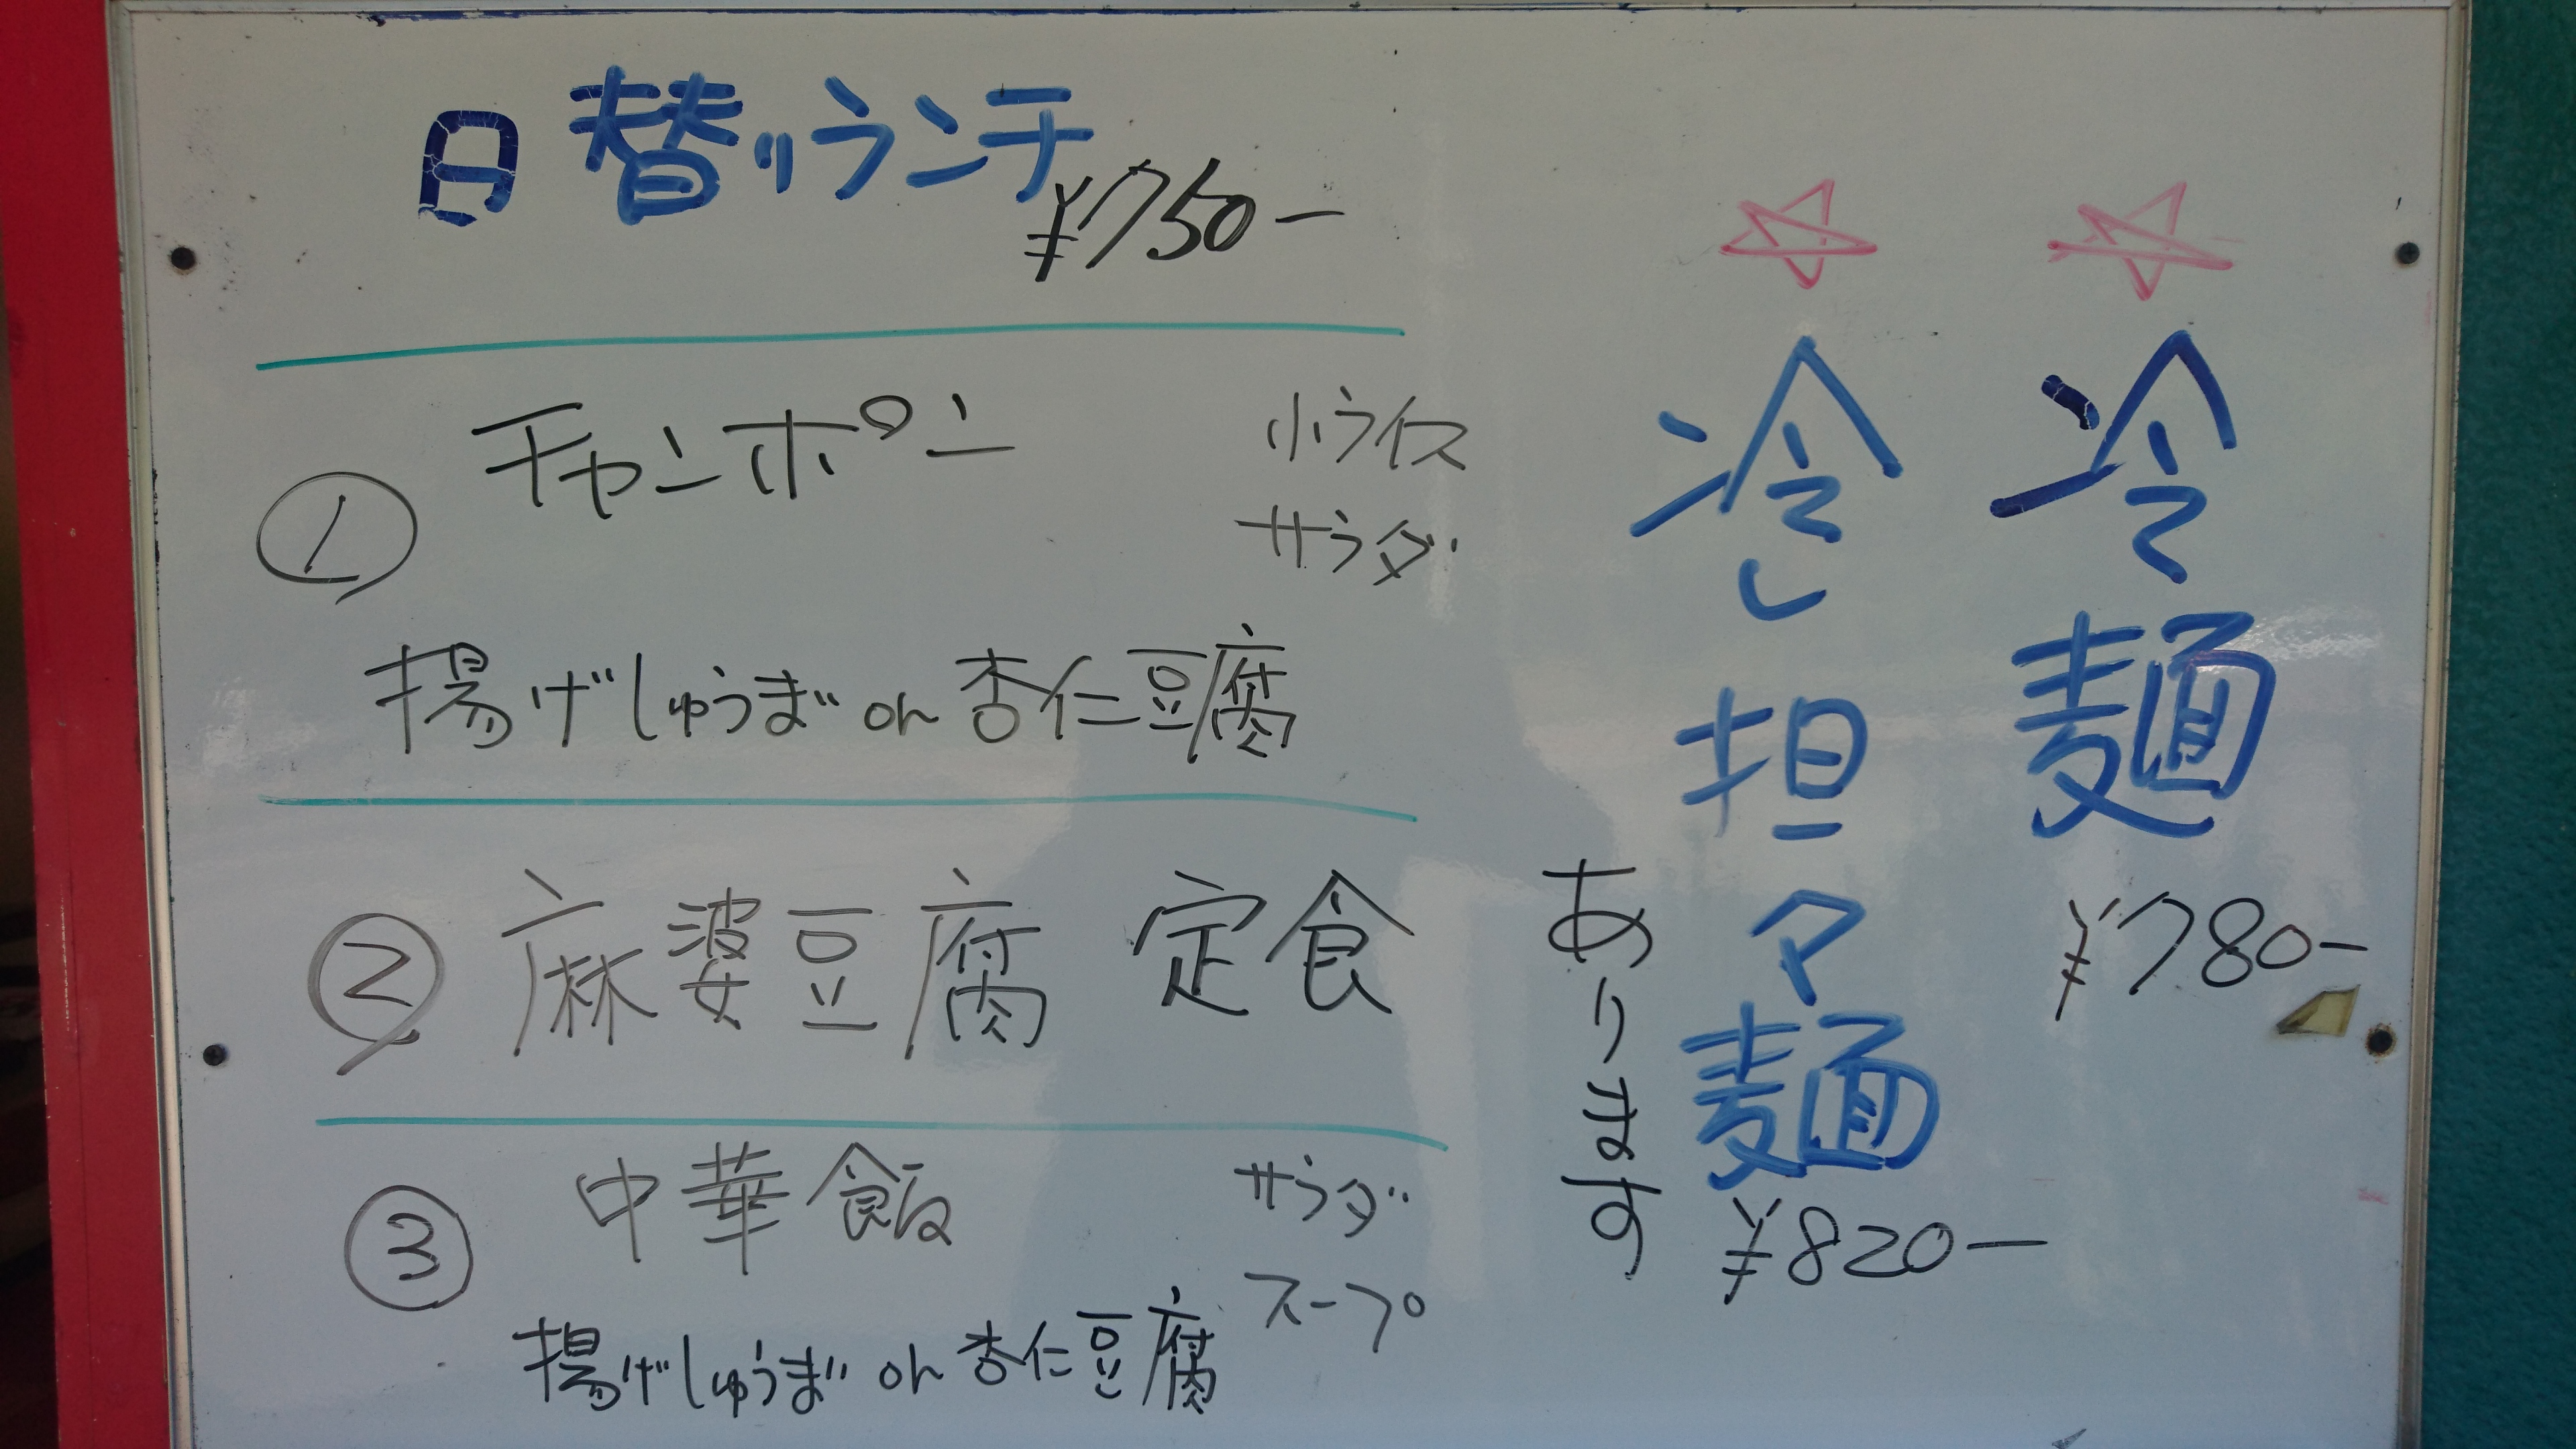 日替りランチ
¥750-
① チャンポン
小ライス
サラダ
揚げしゅうまい or 杏仁豆腐
② 麻婆豆腐 定食
③ 中華飯
サラダ
スープ
揚げしゅうまい or 杏仁豆腐
☆冷麺 ¥780-
☆冷し担々麺 ¥820-
あります